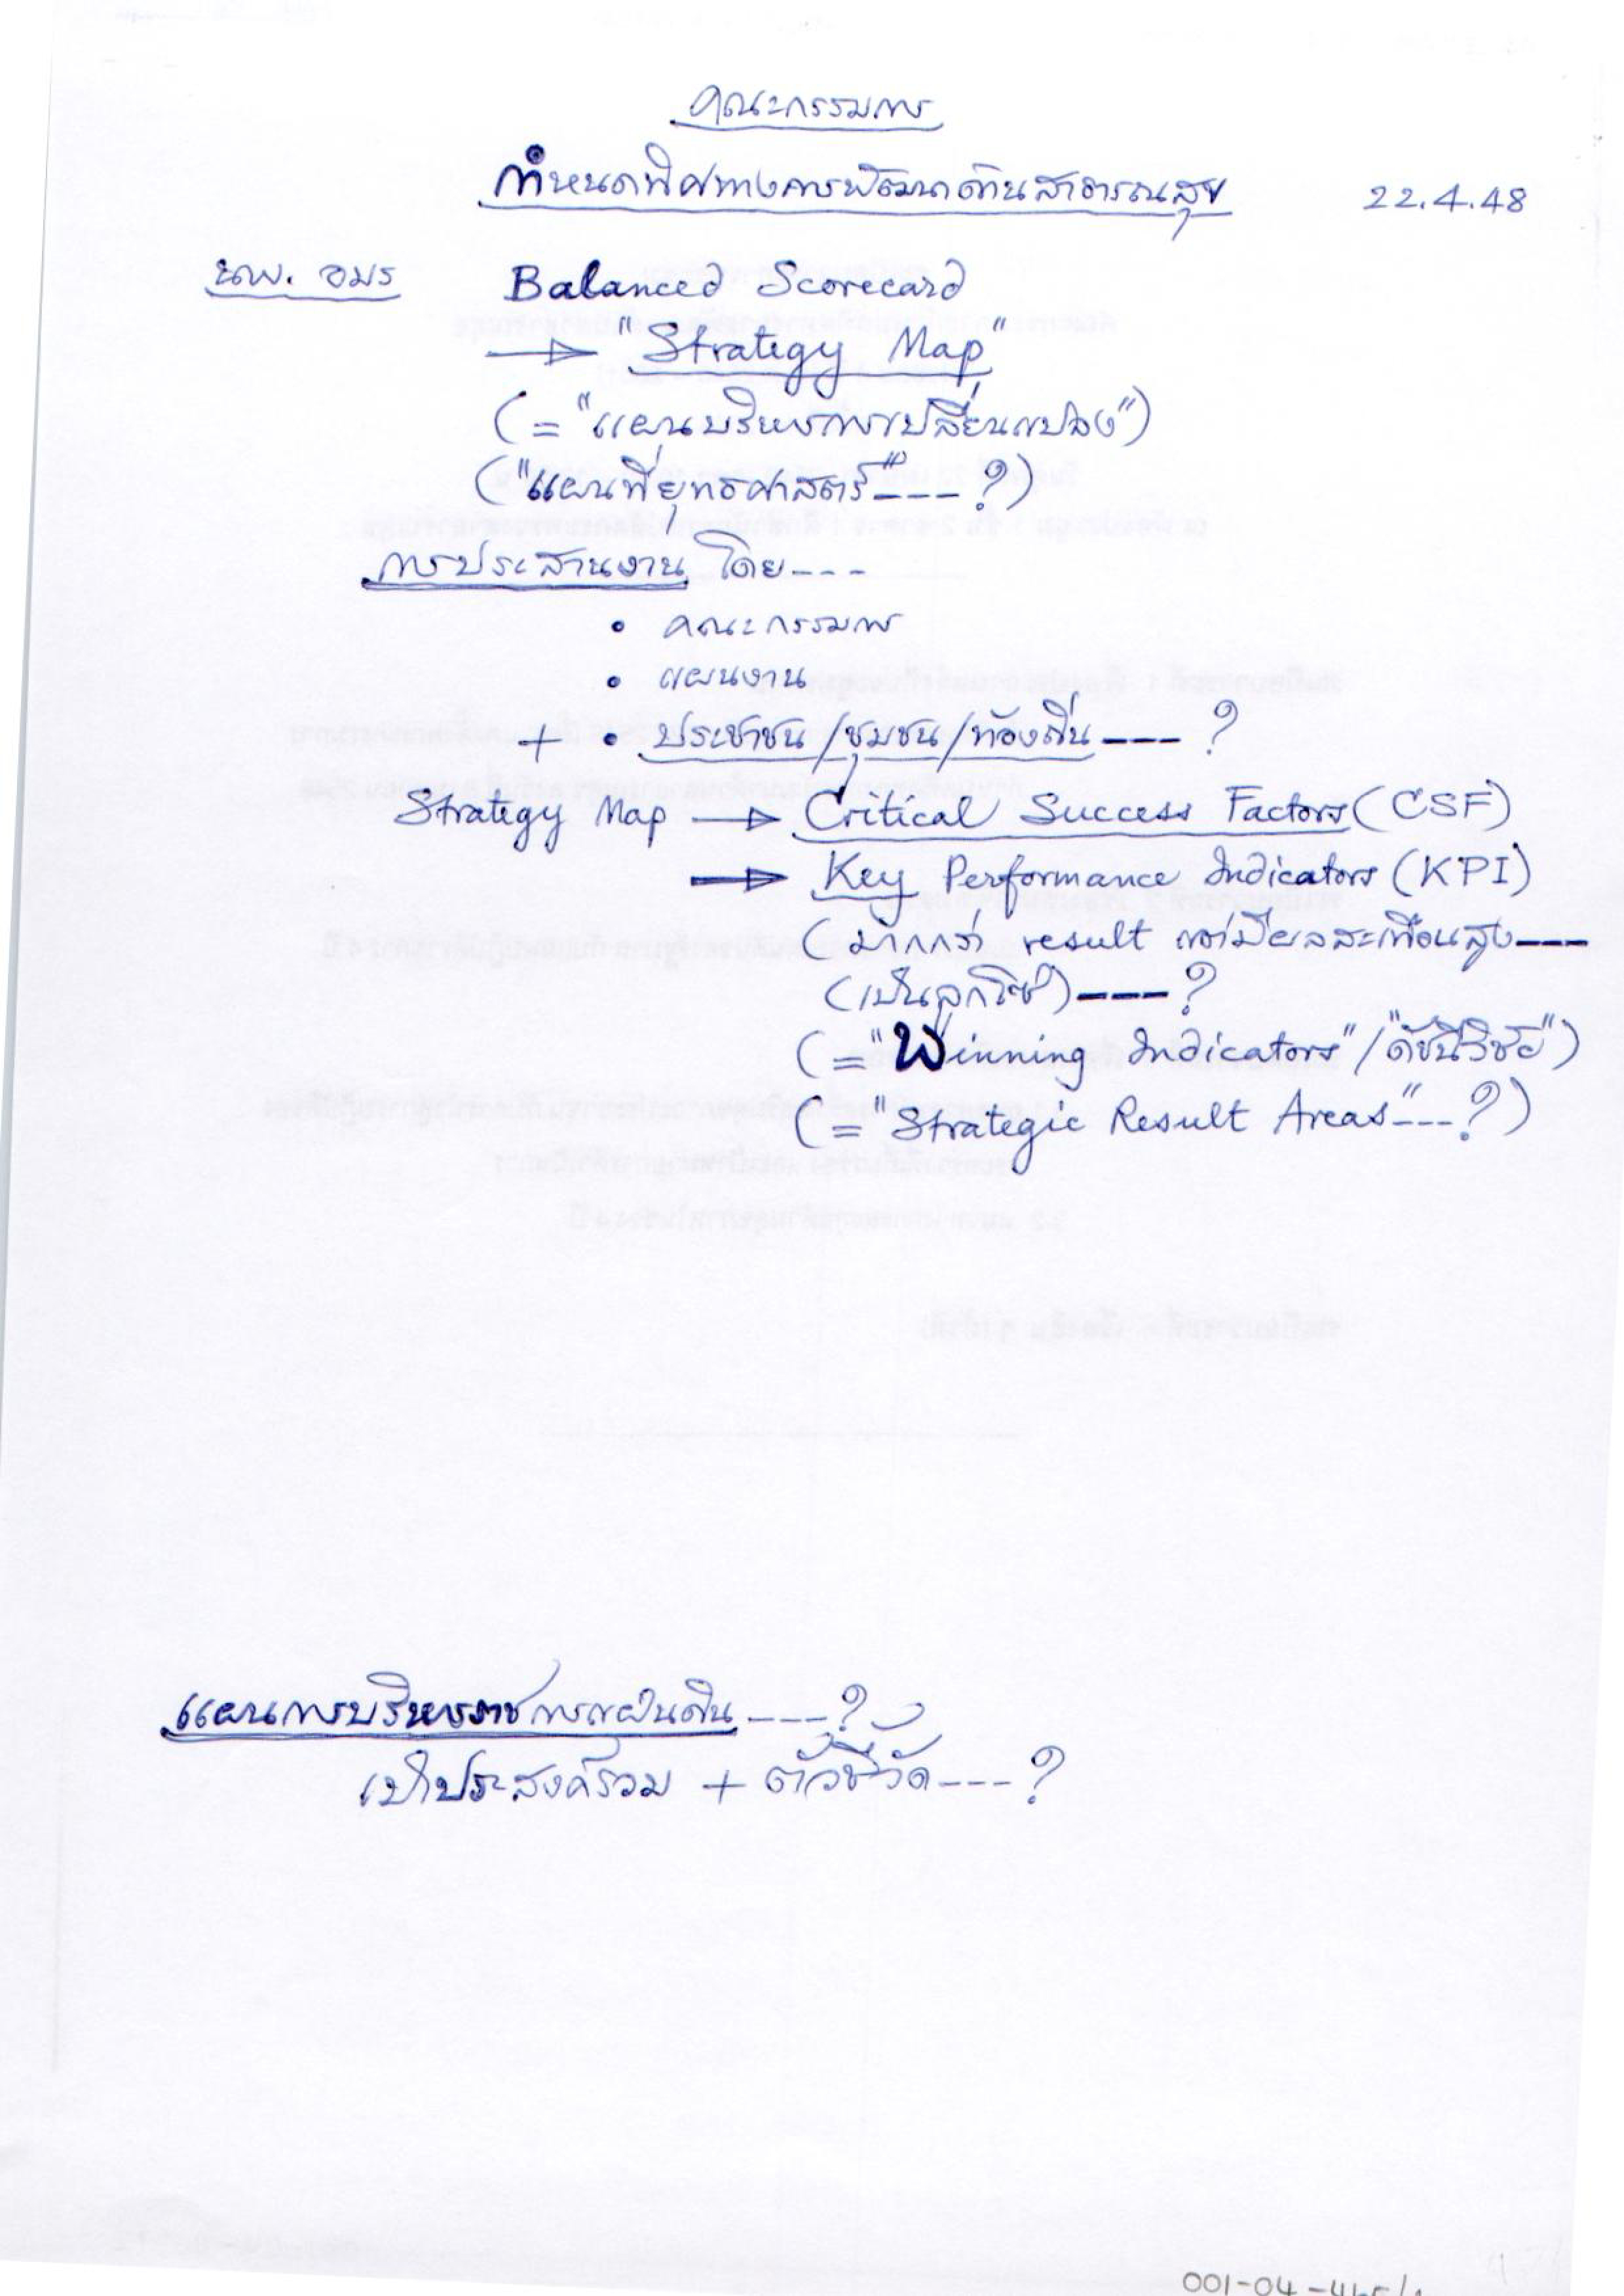 คณะกรรมการ
กำหนดทิศทางการพัฒนาด้านสาธารณสุข 22.4.48
นพ. อมร Balanced Scorecard
→ "Strategy Map"
(= "แผนบริหารการเปลี่ยนแปลง")
("แผนที่ยุทธศาสตร์"---?)
การประสานงาน โดย---
• คณะกรรมการ
• แผนงาน
+ • ประชาชน/ชุมชน/ท้องถิ่น---?
Strategy Map → Critical Success Factors (CSF)
→ Key Performance Indicators (KPI)
(มากกว่า result แต่มีผลสะเทือนสูง---
(เป็นลูกโซ่)---?
(= "Winning Indicators"/"ดัชนีวิชัย")
(= "Strategic Result Areas"---?)
แผนการบริหารราชการแผ่นดิน---?
เป้าประสงค์รวม + ตัวชี้วัด---?